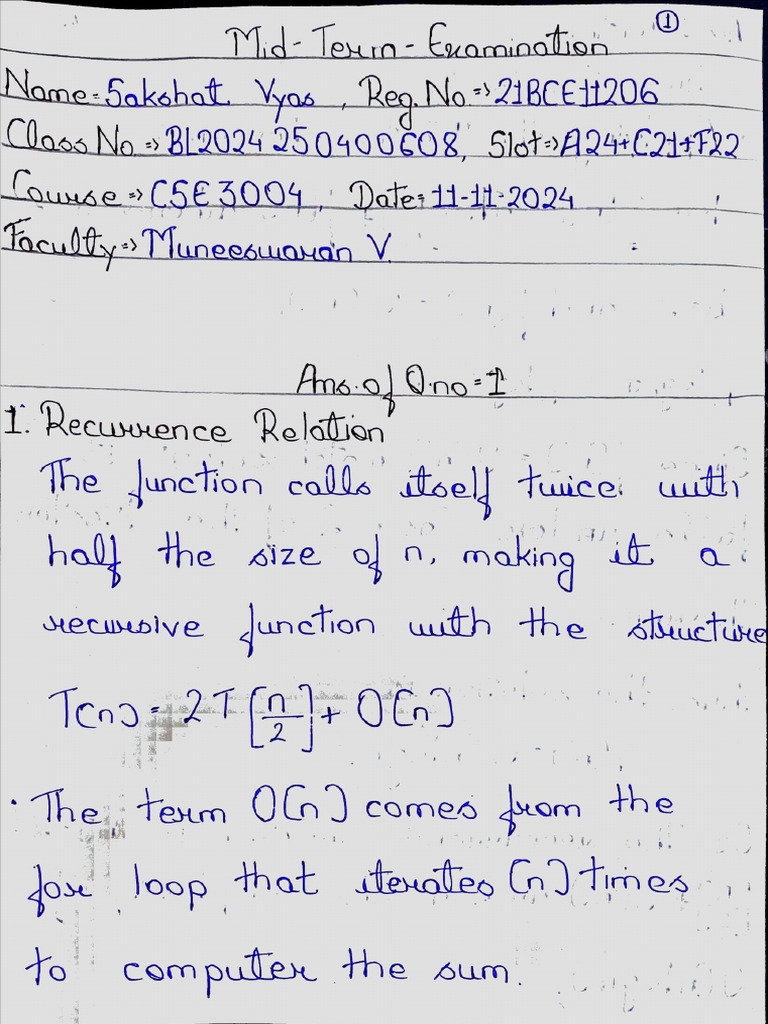 ①
Mid-Term-Examination
Name=Sakshat Vyas, Reg.No=>21BCE11206
Class No=>BL2024250400608, Slot=>A24+C21+F22
Course=>CSE3004, Date=11-11-2024
Faculty=>Muneeswaran V.
Ans.of Q.no=1
1. Recurrence Relation
The function calls itself twice with
half the size of n, making it a
recursive function with the structure
T(n)=2T[n/2]+O[n]
· The term O[n] comes from the
for loop that iterates [n] times
to computer the sum.